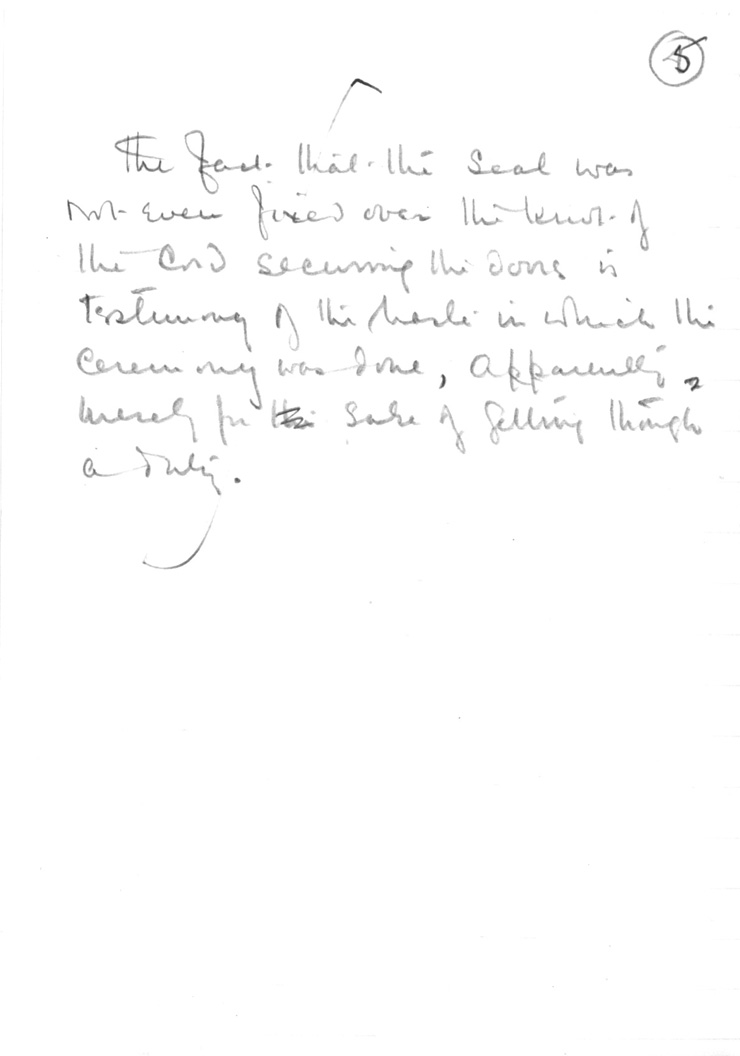 5
The fact that the seal was
not even fixed over the knot of
the cord securing the doors is
testimony of the haste in which the
ceremony was done, apparently,
merely for the sake of getting through
a duty.